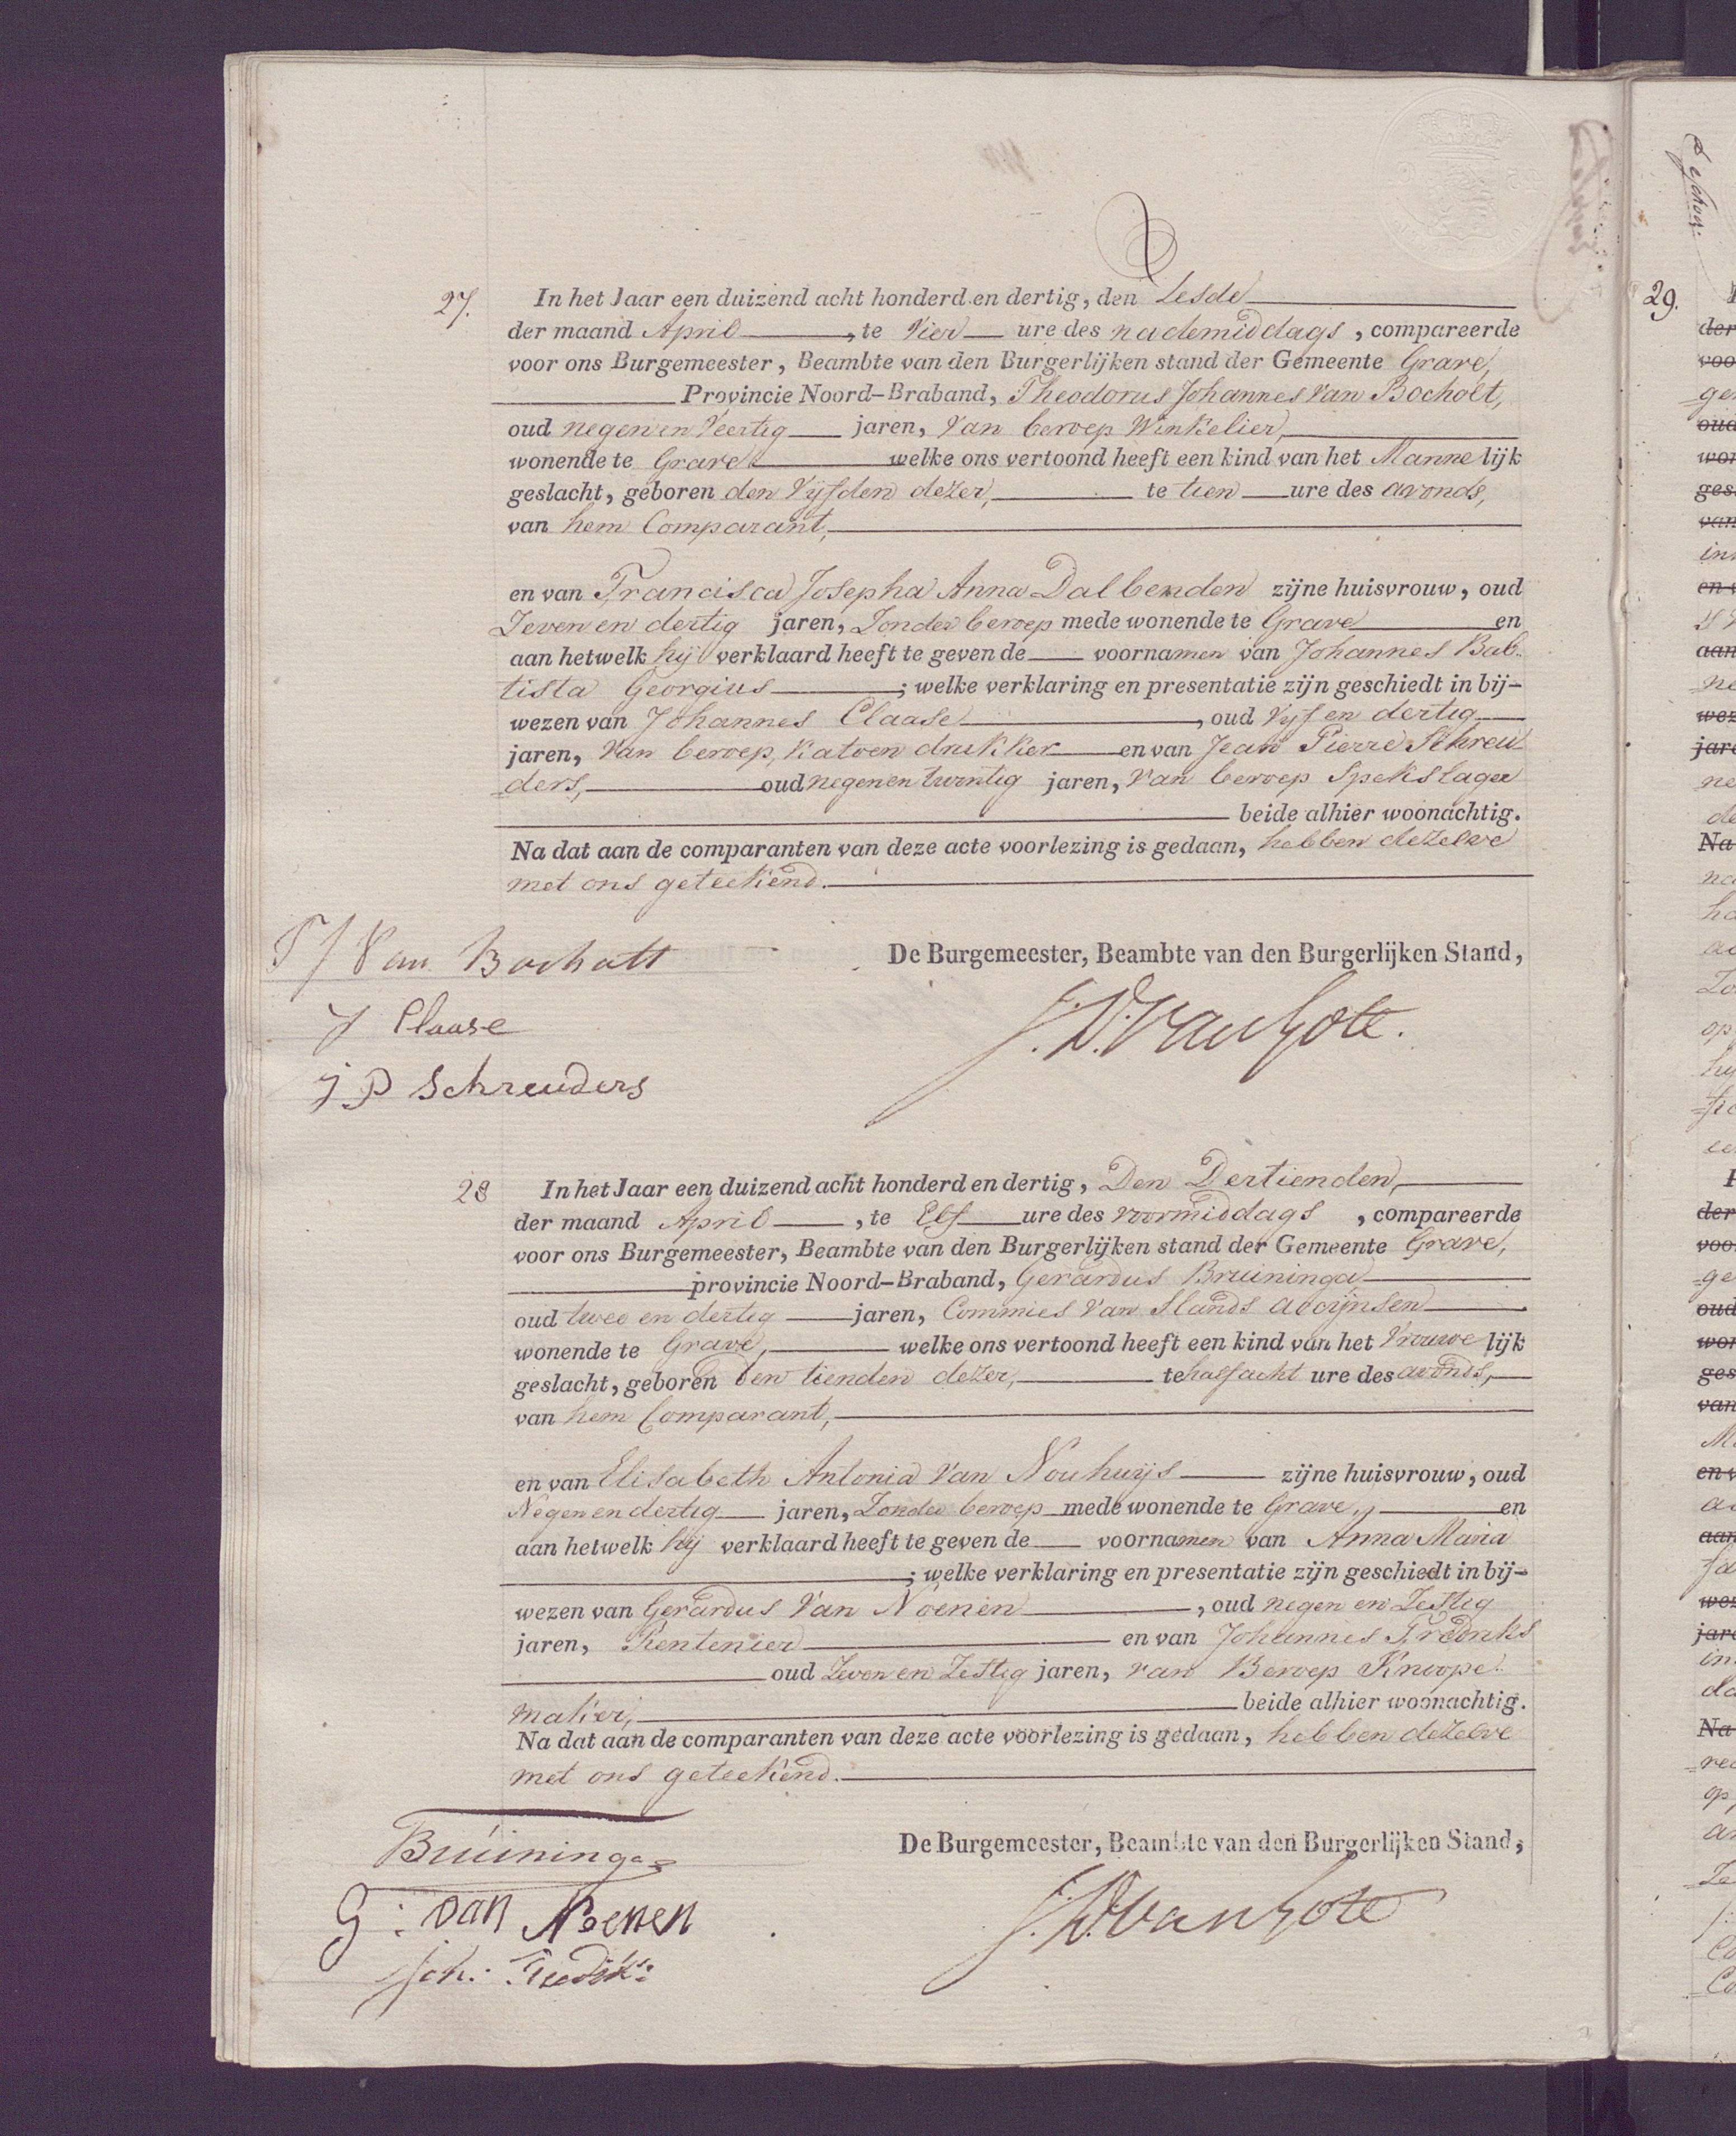 27. In het Jaar een duizend acht honderd en dertig, den Zesde
der maand April, te Vier ure des nademiddags, compareerde
voor ons Burgemeester, Beambte van den Burgerlijken stand der Gemeente Grave,
Provincie Noord-Braband, Theodorus Johannes Van Bocholt,
oud negen en Veertig jaren, Van beroep Winkelier,
wonende te Grave welke ons vertoond heeft een kind van het Mannelijk
geslacht, geboren den Vijfden dezer, te tien ure des avonds,
van hem Comparant,
en van Francisca Josepha Anna Dalbenden zijne huisvrouw, oud
Zeven en dertig jaren, Zonder beroep mede wonende te Grave en
aan hetwelk hij verklaard heeft te geven de voornamen van Johannes Bab-
tista Georgius; welke verklaring en presentatie zijn geschiedt in bij-
wezen van Johannes Claase, oud Vijf en dertig
jaren, Van beroep, Katoen drukker en van Jean Pierre Schreu-
ders, oud negen en twintig jaren, Van beroep Spekslager
beide alhier woonachtig.
Na dat aan de comparanten van deze acte voorlezing is gedaan, hebben dezelve
met ons geteekend.
T J Van Bocholt
De Burgemeester, Beambte van den Burgerlijken Stand,
J Claase
J P Schreuders
28 In het Jaar een duizend acht honderd en dertig, Den Dertienden,
der maand April, te Elf ure des voormiddags, compareerde
voor ons Burgemeester, Beambte van den Burgerlijken stand der Gemeente Grave,
provincie Noord-Braband, Gerardus Bruininga
oud twee en dertig jaren, Commies Van Slands accijnsen
wonende te Grave, welke ons vertoond heeft een kind van het Vrouwelijk
geslacht, geboren den tienden dezer, te half acht ure des avonds,
van hem Comparant,
en van Elisabeth Antonia Van Nouhuijs zijne huisvrouw, oud
Negen en dertig jaren, Zonder beroep mede wonende te Grave, en
aan hetwelk hij verklaard heeft te geven de voornamen van Anna Maria
; welke verklaring en presentatie zijn geschiedt in bij-
wezen van Gerardus Van Noenen, oud negen en Zestig
jaren, Rentenier en van Johannes Fredriks
oud Zeven en Zestig jaren, van Beroep Knoope-
maker, beide alhier woonachtig.
Na dat aan de comparanten van deze acte voorlezing is gedaan, hebben dezelve
met ons geteekend.
Bruininga
De Burgemeester, Beambte van den Burgerlijken Stand,
G: van Noenen
Joh:
29.